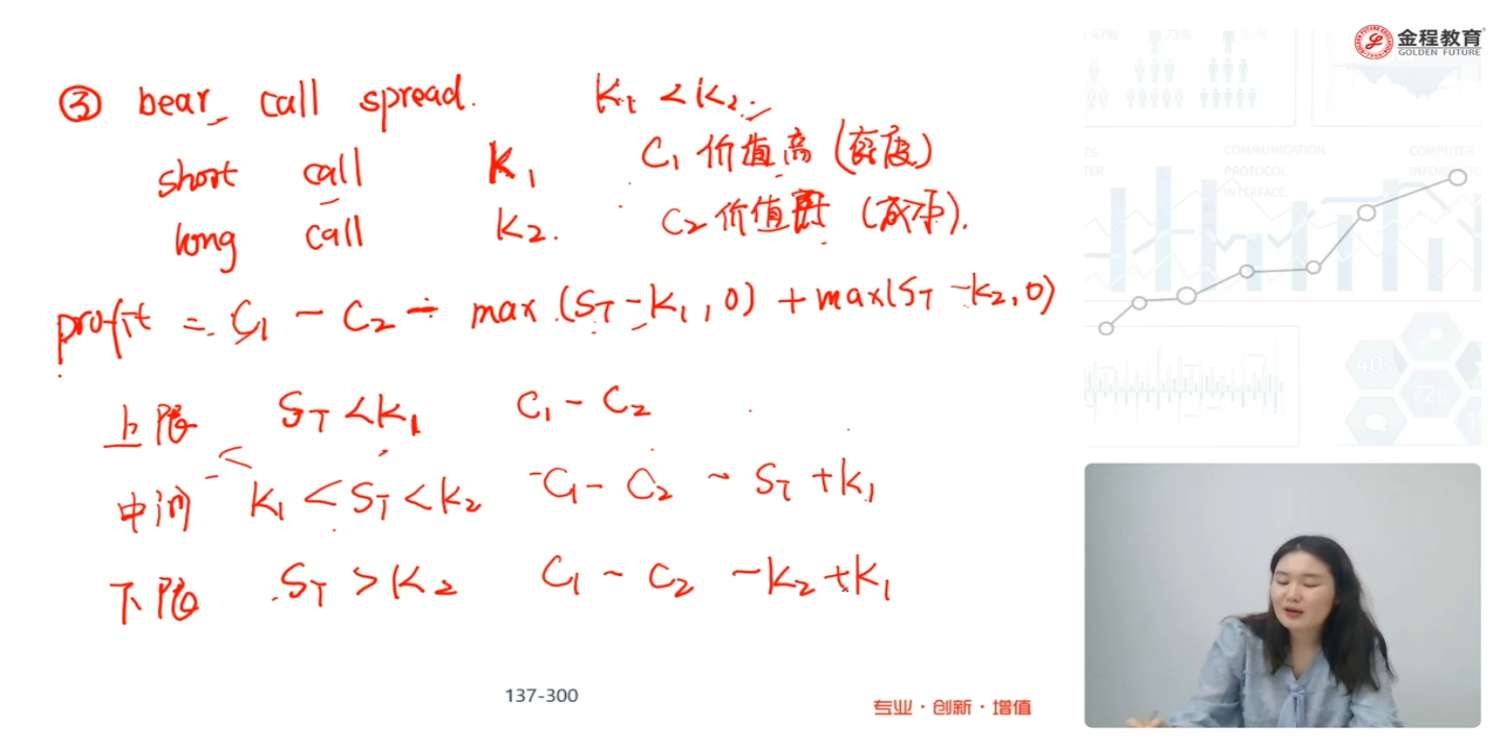 金程教育
GOLDEN FUTURE
③ bear call spread. K₁ < K₂
short call K₁ C₁ 价值高
long call K₂. C₂ 价值
profit = C₁ - C₂ - max (S_T - K₁, 0) + max(S_T - K₂, 0)
上限 S_T < K₁ C₁ - C₂
中间 K₁ < S_T < K₂ C₁ - C₂ - S_T + K₁
下限 S_T > K₂ C₁ - C₂ - K₂ + K₁
COMMUNICATION
PROTOCOL
INTERFACE
COMPUTER
137-300
专业·创新·增值